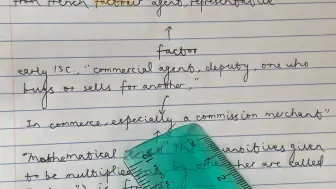 from French facteur agent, representative
factor
early 15c., "commercial agent, deputy, one who
buys or sells for another,"
In commerce, especially a commission merchant"
"Mathematical given
to be multiplied by are called
is f